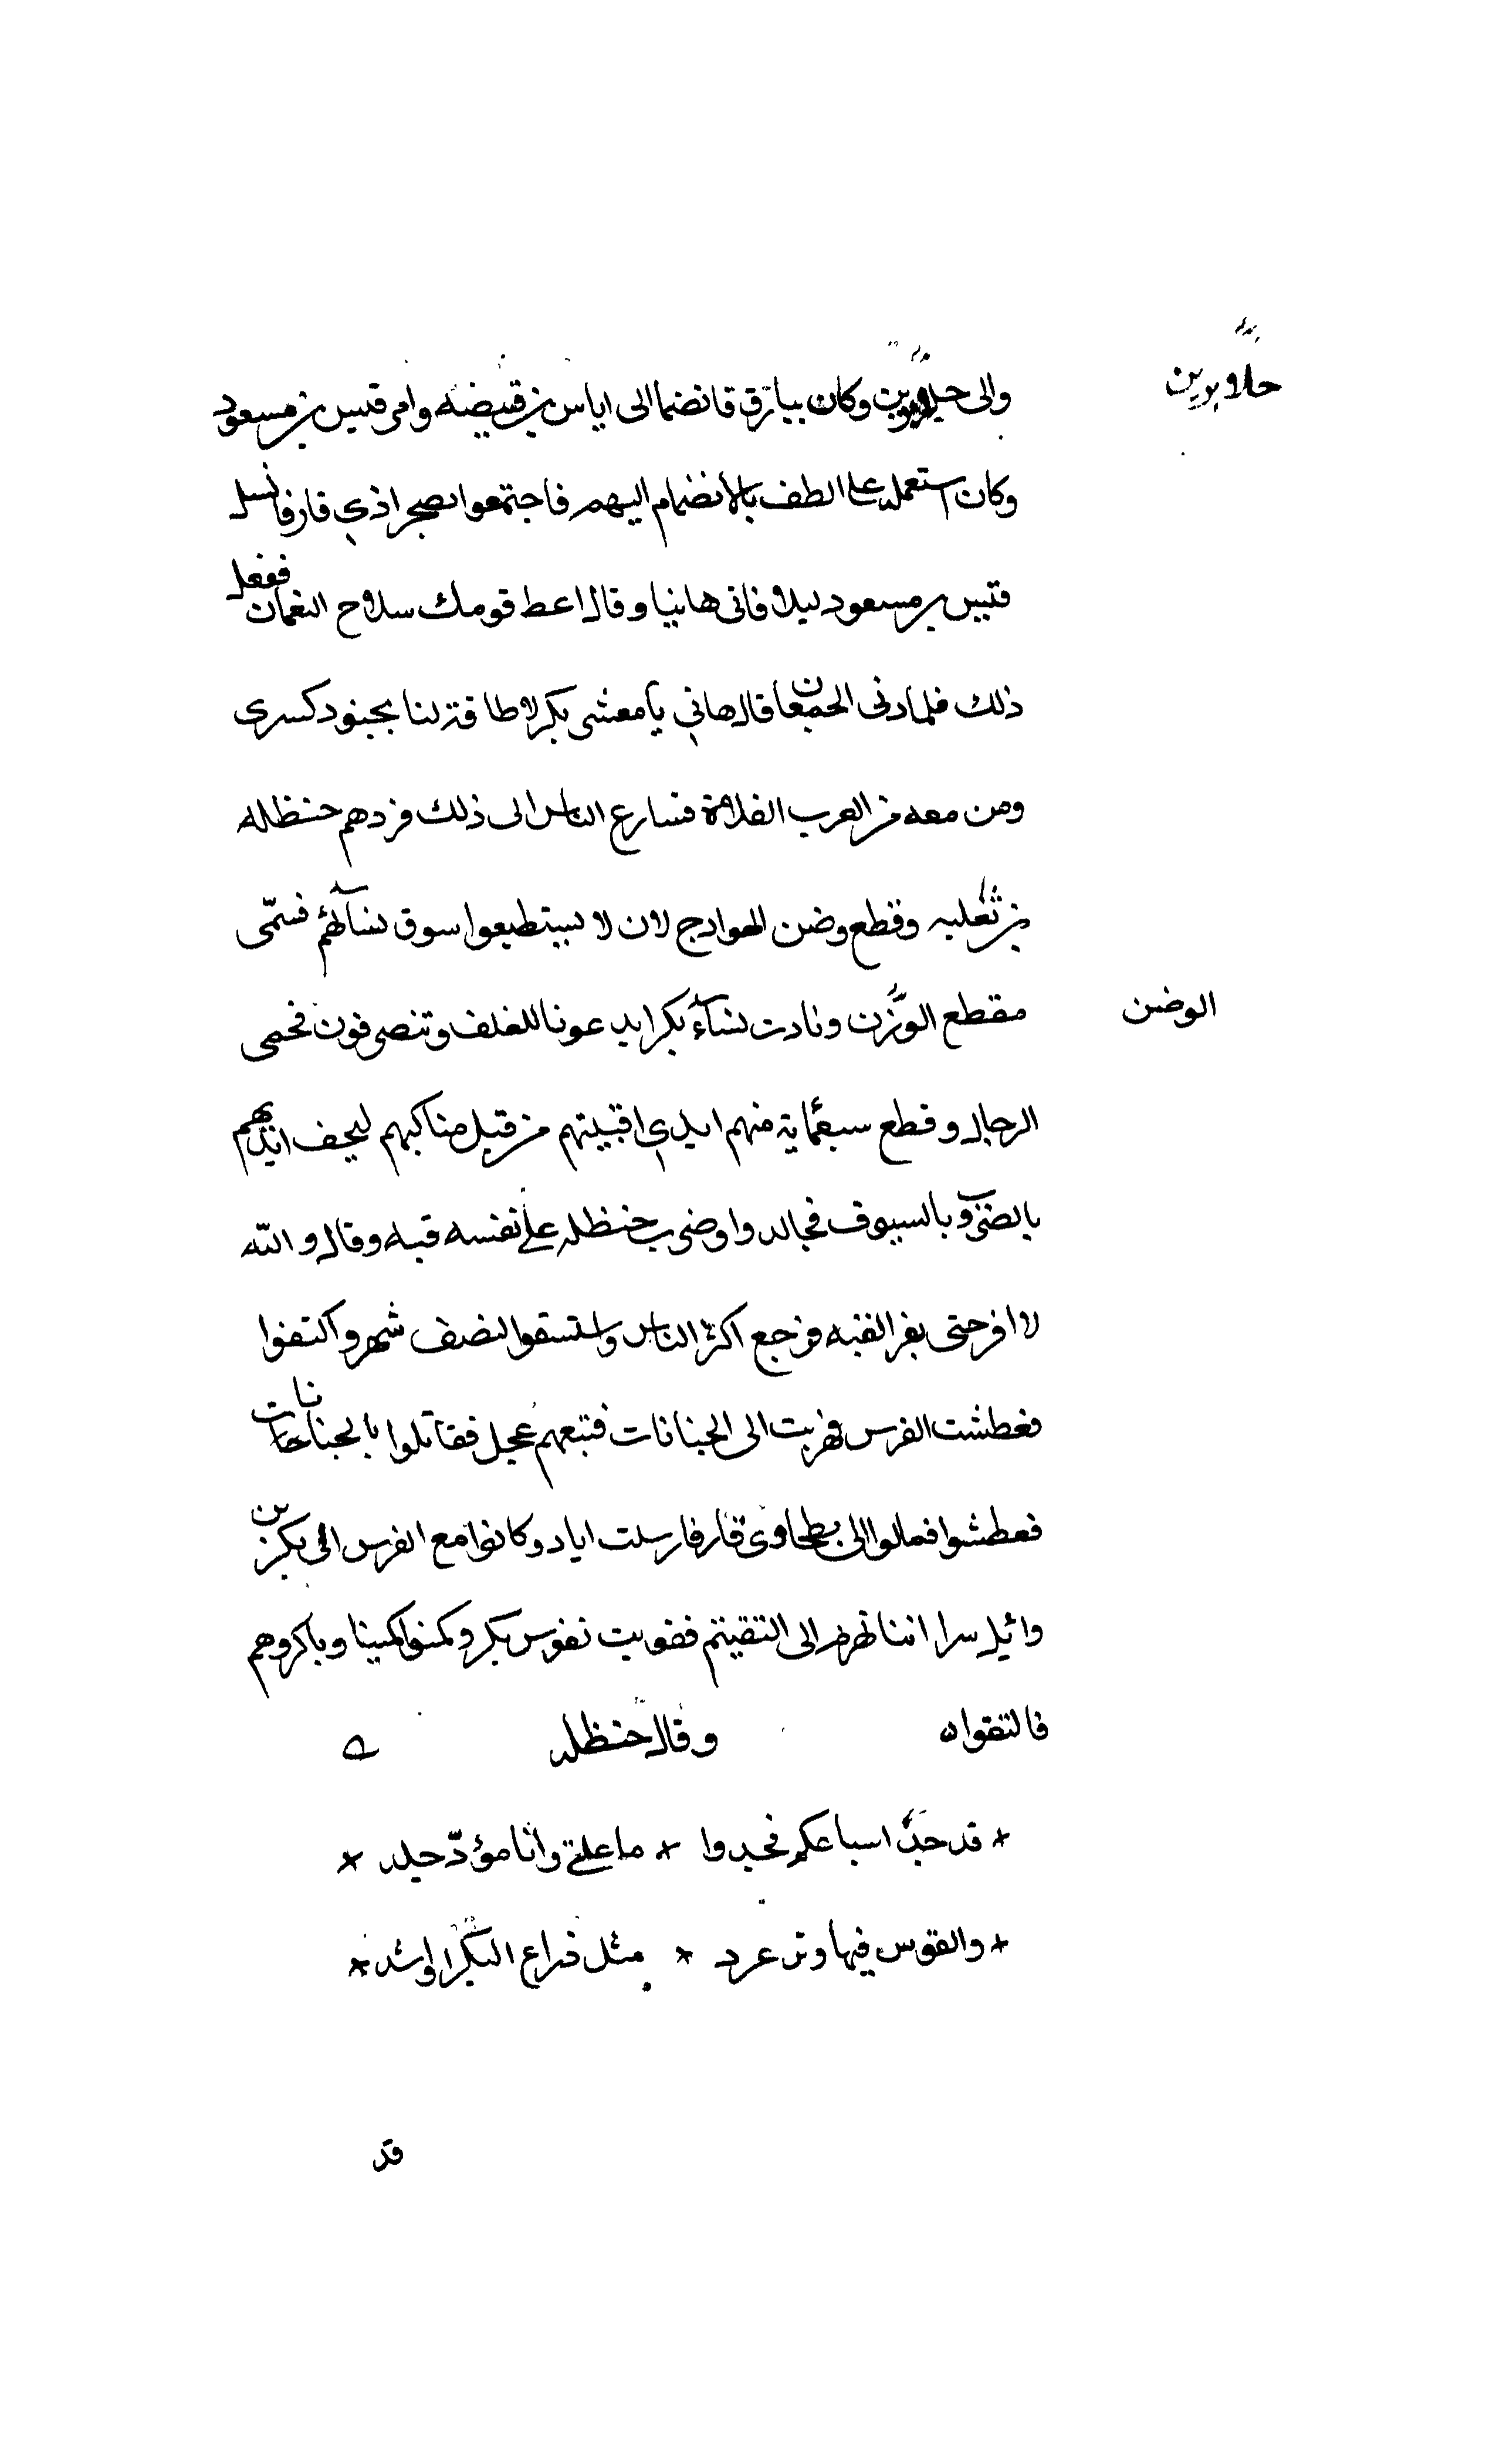 حلابرين
والى حلابرين وكان ببارق فانضما الى اياس بن قبيضه وامر قيس بن مسعود
وكان استعمله على الطف بالانضمام اليهم فاجتمعوا بصحرا ذي قار فانسل
قيس بن مسعود ليلا فاتى هانيا وقال اعط قومك سلاح النعمان ففعل
ذلك فلما دنى الجمعان قال هاني يا معشر بكر لا طاقة لنا بجنود كسرى
ومن معه من العرب الفلاة فسارع الناس الى ذلك فردهم حنظله
بن ثعلبه وقطع وضن الهوادج لان لا يستطيعوا سوق نسآئهم فسمّى
الوضن
مقطع الوزن ونادت نسآء بكر ايدعونا للغلف وتنصرفون فحمى
الرجال وقطع سبعماية منهم ايدي اقبيتهم من قبل مناكبهم ليخف ايديهم
بالضرب وبالسيوف فجالدوا وضرب حنظله على نفسه قبه وقال والله
لا افر حتى يفر القبه فرجع اكثر الناس واستسقوا لنصف شهر واكتفوا
فعطشت الفرس فهربت الى الجبانات فتبعهم عجل فقاتلوا بالجبانات
فعطشوا فمالوا الى بطحاوى قار فارسلت اياد وكانوا مع الفرس الى بكر بن
وائيل سرا اننا نهرم الى التقيتم فقويت نفوس بكر وكمنوا كمينا وباكروهم
فالتقواه وقال حنظله
* قد جدّ اسباعكم فجدوا * ما علتي وانا مؤدّ جلد *
* والقوس فيها وتر عرد * مثل ذراع البكر او اشد *
قد